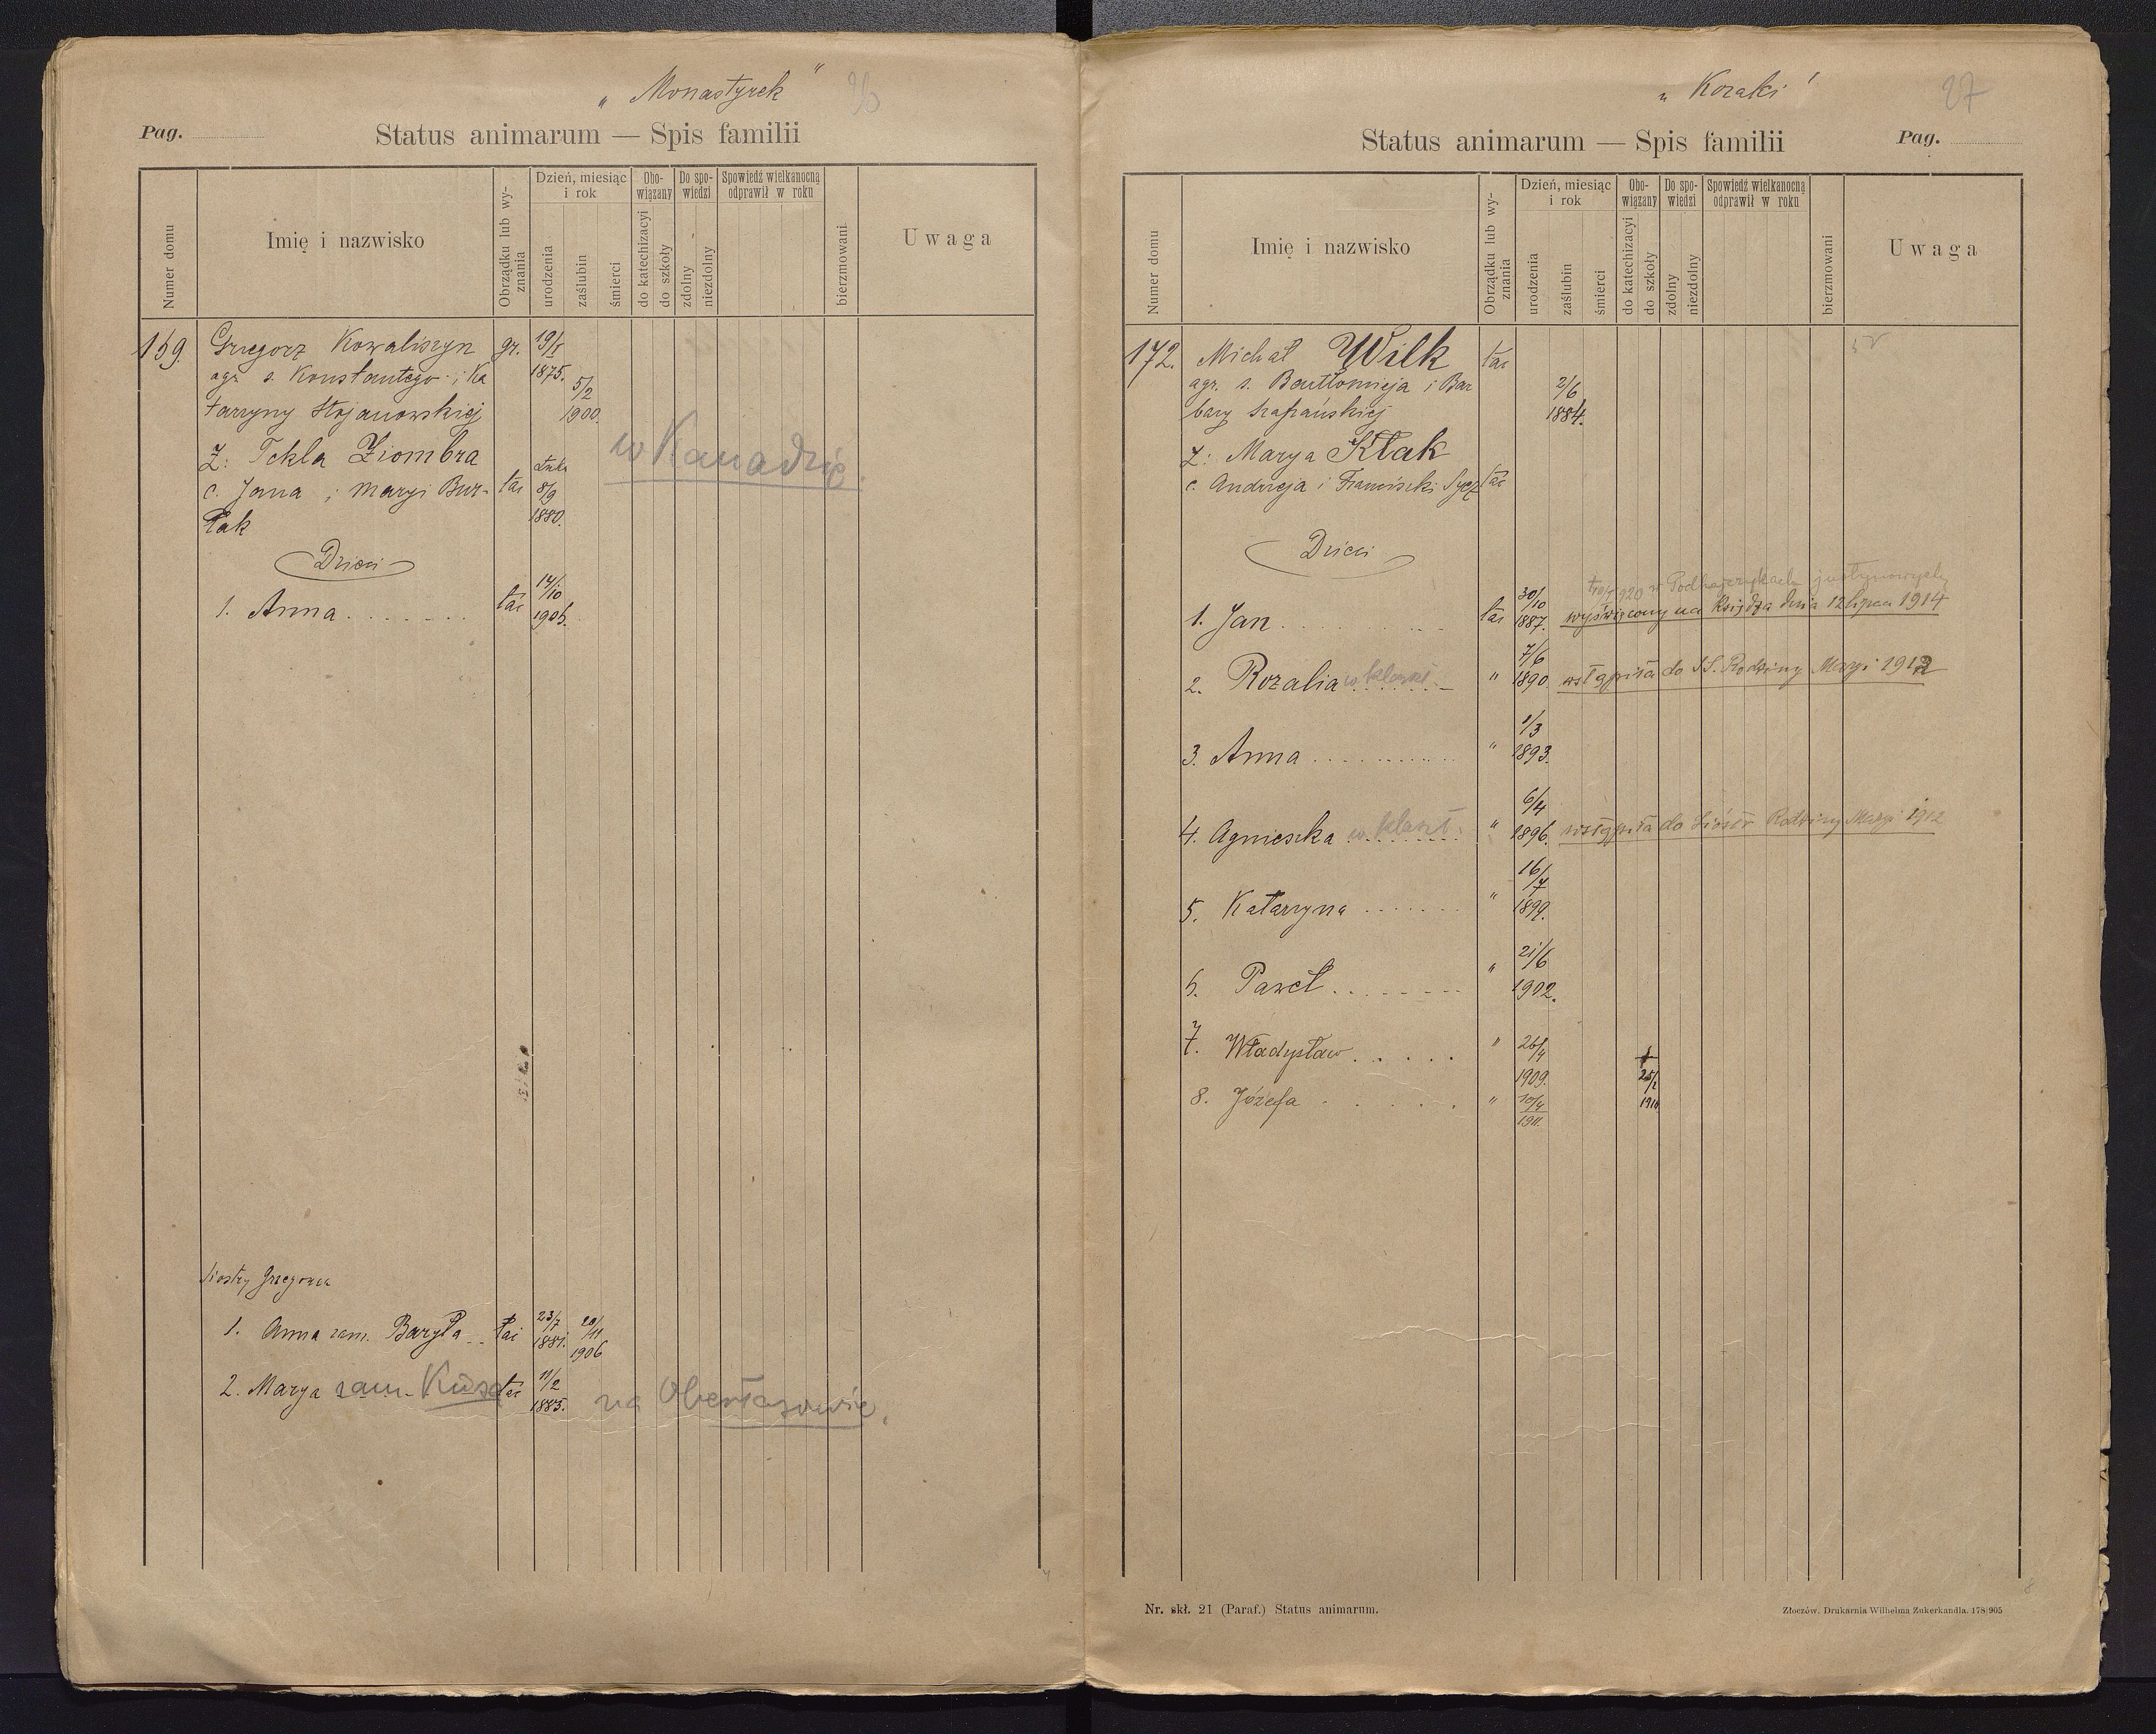 „Monastyrek"
26
Pag.
Status animarum — Spis familii
Numer domu
Imię i nazwisko
Obrządku lub wyznania
Dzień, miesiąc i rok
urodzenia
zaślubin
śmierci
Obowiązany
do katechizacyi
do szkoły
Do spowiedzi
zdolny
niezdolny
Spowiedź wielkanocną odprawił w roku
bierzmowani
Uwaga
159. Grzegorz Kowaliszyn gr. 19/I 1875.
agr. s. Konstantego i Ka 5/2
tarzyny Stojanowskiej 1900.
w Kanadzie.
Ż: Tekla Ziombra
c. Jana i Maryi Bur- łac 8/9
łak 1880.
Dzieci
1. Anna . . . . . . . łac 14/10 1905.
Siostry Grzegorza
1. Anna zam. Baryła łac 23/7 1881. 20/11 1906
2. Marya zam. łac 11/2 1885. na
„Kozaki"
27
Status animarum — Spis familii
Pag.
Numer domu
Imię i nazwisko
Obrządku lub wyznania
Dzień, miesiąc i rok
urodzenia
zaślubin
śmierci
Obowiązany
do katechizacyi
do szkoły
Do spowiedzi
zdolny
niezdolny
Spowiedź wielkanocną odprawił w roku
bierzmowani
Uwaga
172. Michał Wilk łac
agr. s. Bartłomieja i Bar 2/6
bary Szafrańskiej 1884.
Ż: Marya Kłak
c. Andrzeja i Franciszki Sycz łac
Dzieci
920 w Podhajczykach justynowych
1. Jan . . . . . łac 30/10 1887. wyświęcony na Księdza dnia 12 lipca 1914
2. Rozalia w klaszt. " 7/6 1890. wstąpiła do SS. Rodziny Maryi 1912
3. Anna . . . . . " 1/3 1893.
4. Agnieszka w klaszt. " 6/4 1896. wstąpiła do Sióstr Rodziny Maryi 1912
5. Katarzyna . . . . " 16/7 1899.
6. Paweł . . . . . " 21/6 1902.
7. Władysław . . . . . " 26/4 1909. † 25/2 1910
8. Józefa . . . . . " 20/4 1911.
Nr. skł. 21 (Paraf.) Status animarum.
Złoczów. Drukarnia Wilhelma Zukerkandla. 178|905